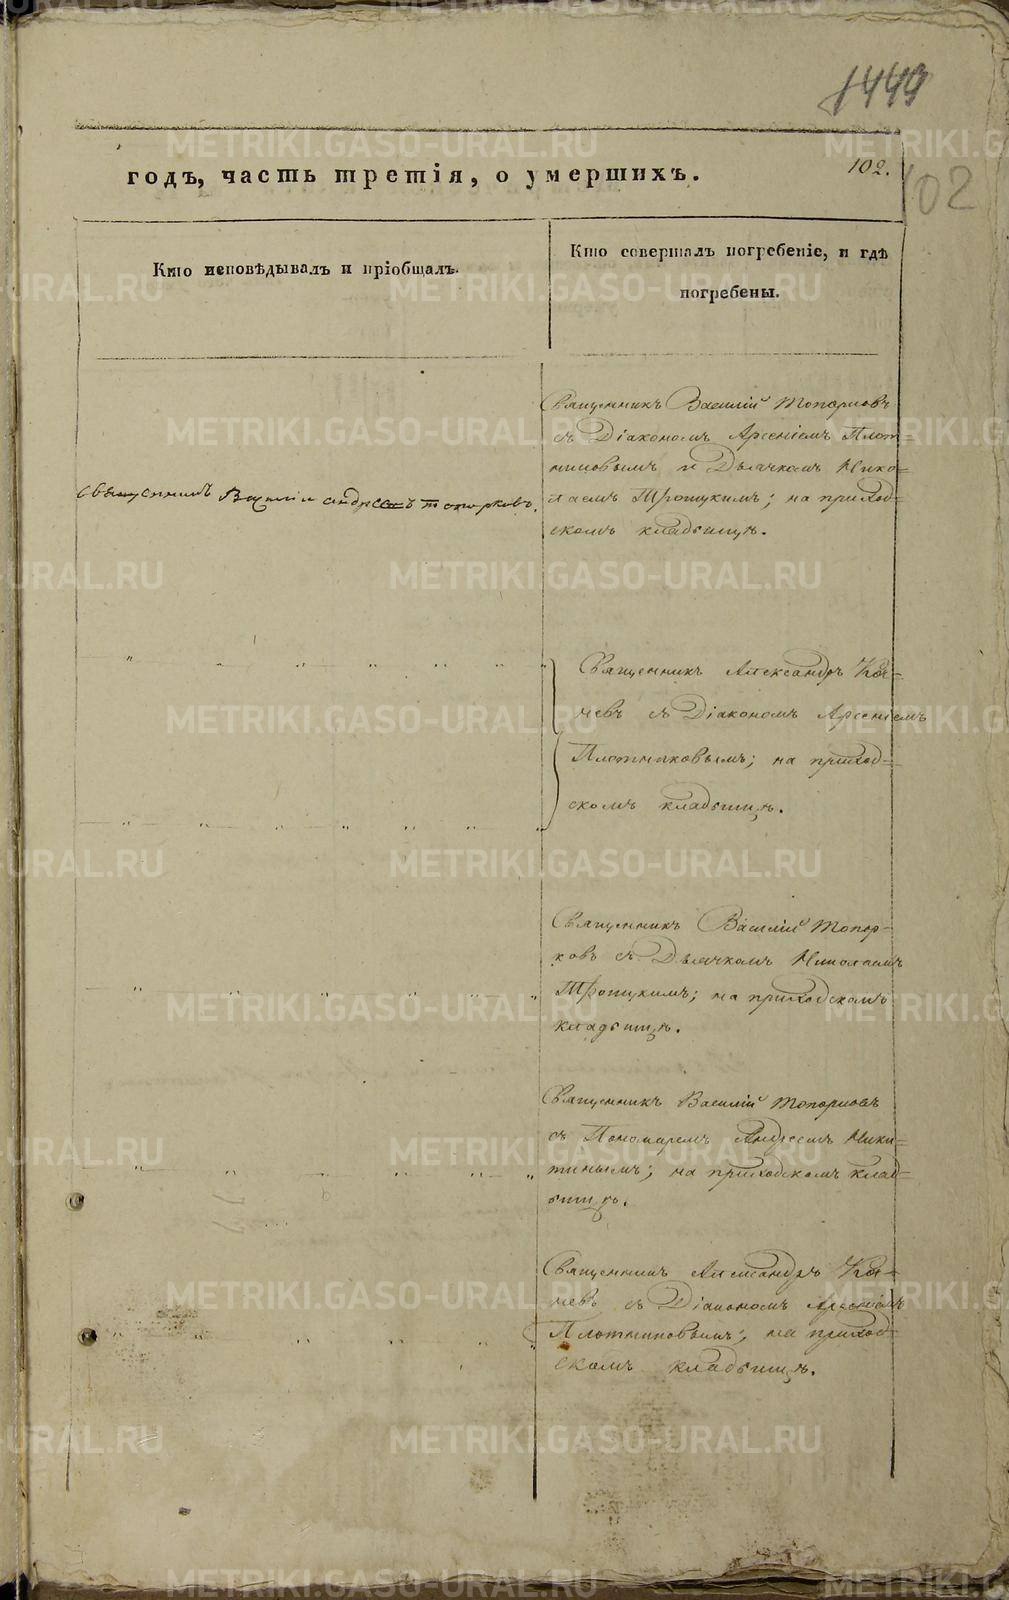 1449
102.
102
годъ, часть третія, о умершихъ.
Кто исповѣдывалъ и пріобщалъ.
Кто совершалъ погребеніе, и гдѣ
погребены.
Священникъ Василій Топорковъ
съ Діакономъ Арсеніемъ Плот=
никовымъ и Дьячкомъ Нико=
лаемъ Троицкимъ; на приход=
скомъ кладбищѣ.
Священникъ Василій Топорковъ.
Священникъ Александръ
чевъ съ Діакономъ Арсеніемъ
Плотниковымъ; на приход=
скомъ кладбищѣ.
Священникъ Василій Топор=
ковъ съ Дьячкомъ Николаемъ
Троицкимъ; на приходскомъ
кладбищѣ.
Священникъ Василій Топорковъ
съ Пономаремъ Андреемъ Ники=
тинымъ; на приходскомъ клад=
бищѣ.
Священникъ Александръ
чевъ съ Діакономъ Арсеніемъ
Плотниковымъ; на приход=
скомъ кладбищѣ.
METRIKI.GASO-URAL.RU